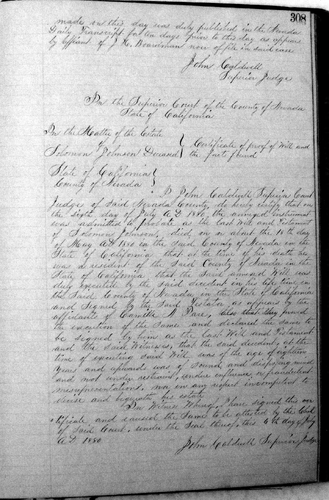 308
made on this day was duly published in the Nevada
Daily Transcript for ten days prior to this day as appears
by affidavit of J. K. Boardman now of file in said case
John Caldwell
Superior Judge
In the Superior Court of the County of Nevada
State of California
In the Matter of the Estate
of
Solomon Johnson Deceased
Certificate of proof of Will and
the fact found
State of California
County of Nevada
I John Caldwell Superior Court
Judge of Said Nevada County do hereby certify that on
the Sixth day of July A.D. 1880, the annexed instrument
was admitted to probate as the last Will and Testament
of Solomon Johnson, died on or about the 11th day
of May A.D. 1880 in the Said County of Nevada in the
State of California that at the time of his death he
was a resident of the Said County of Nevada in the
State of California that the Said annexed Will was
duly executed by the said decedent in his life time in
the Said County of Nevada in the State of California
and Signed by the Said testator as appears by the
affidavits of Camilla A. Pare, also that they proved
the execution of the Same and declared the same to
be signed by him as the last Will and Testament
and the said Witnesses, that the said decedent, at the
time of executing said Will, was of the age of eighteen
years and upwards was of Sound and disposing mind
and not under restraint, undue influence or fraudulent
misrepresentations, nor in any respect incompetent to
devise and bequeath his estate
In Witness Whereof, I have signed this cer
tificate and caused the Same to be attested by the Clerk
of Said Court, under the Seal thereof, this 6th day of July
A.D. 1880.
John Caldwell Superior Judge